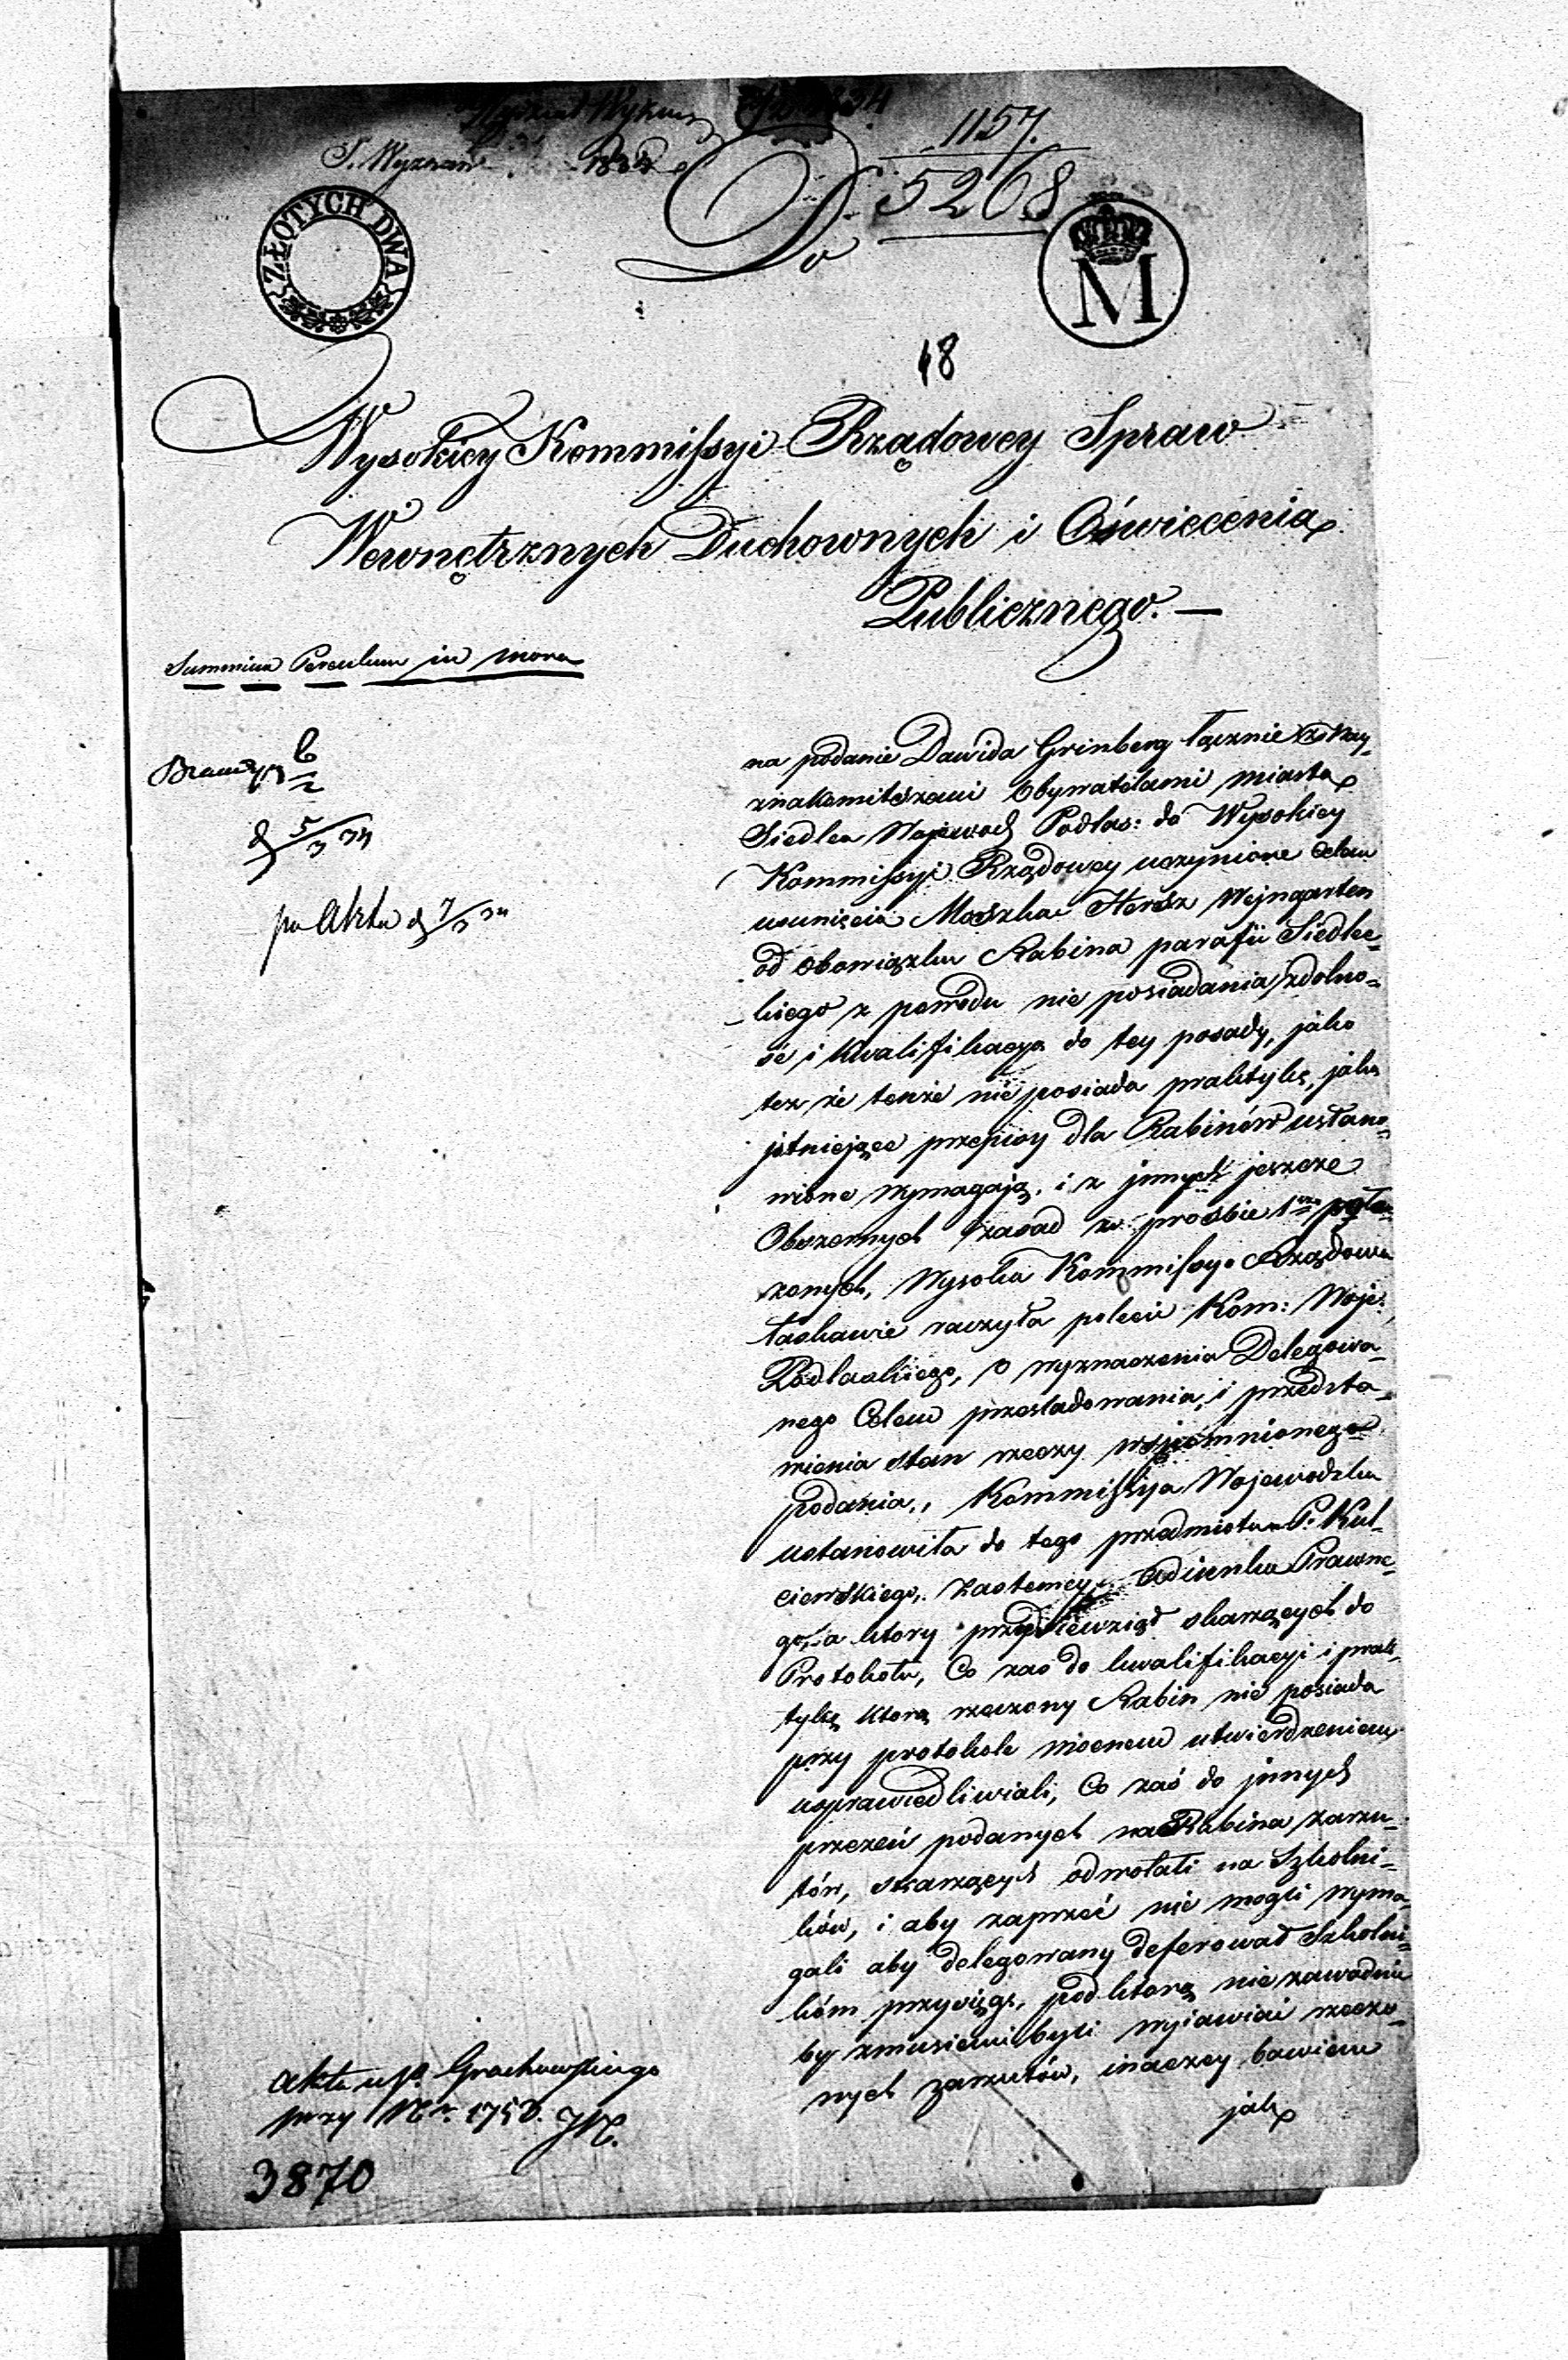 1157.
S. Wyznań
5268
Do
ZŁOTYCH DWA
M
48
Wysokiey Kommissyi Rządowey Spraw
Wewnętrznych Duchownych i Oświecenia
Publicznego. —
Summum Periculum in mora
na podanie Dawida Grinberg łącznie
znakomitszemi Obywatelami miasta
Siedlca Wojewod Podlas: do Wysokiey
Kommissyi Rządowey uczynione celem
usunięcia Moszka Hersz Wejngarten
od obowiązku Rabina parafii Siedlec-
kiego z powodu nie posiadania zdolno-
ść i kwalifikacya do tey posady, jako
tez że tenże nie posiada praktykę, jaką
jstniejące przepisy dla Rabinów ustano-
wione wymagają, i z jnnych jeszcze
Obszernych zasad w prosbie 1
żonych, Wysoka Kommissya Rządowa
łaskawie raczyła polecić Kom: Woje:
Podlaskiego, o wyznaczenia Delegowa-
nego Celem przesladowania, i przedsta-
wienia stan rzeczy wspomnionego
podania, Kommissya Wojewodzka
ustanowiła do tego przedmiotu P. Kul-
cierskiego, Zastemcy Adiunka Prawne-
go, a ktory przedsiewziął skarzących do
Protokołu, Co zas do kwalifikacyi i prak-
tykę ktorą rzeczony Rabin nie posiada
przy protokole mocnem utwierdzeniem
usprawiedliwiali, Co zaś do jnnych
przezeń podanych na Rabina zarzu-
tów, skarzących odwołali na Szkolni-
ków, i aby zaprzeć nie mogli wyma-
gali aby delegowany deferował Szkolni-
kóm przysięgę, pod ktorą nie zawodnie
by zmuszeni byli wyiawiać rzeczo-
nych zarzutów, inaczey bowiem
jak
po Akta d 7/3 34
5/3 34
Akta u P. Grochowskiego
przy Nr. 1750.
3870